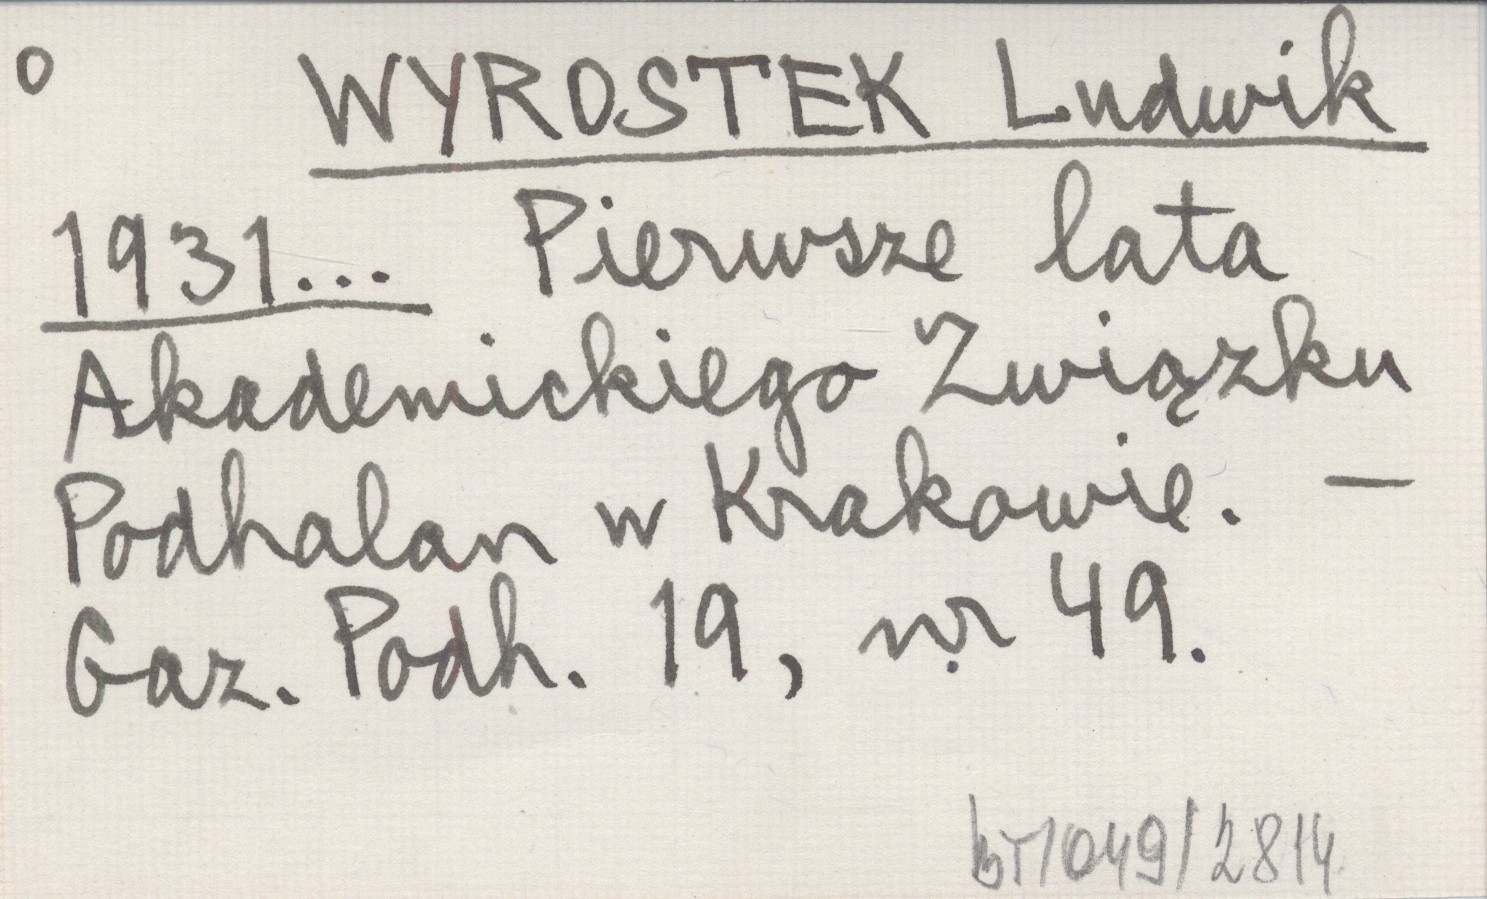 o WYROSTEK Ludwik
1931... Pierwsze lata
Akademickiego Związku
Podhalan w Krakowie. —
Gaz. Podh. 19, nr 49.
br1049/2814